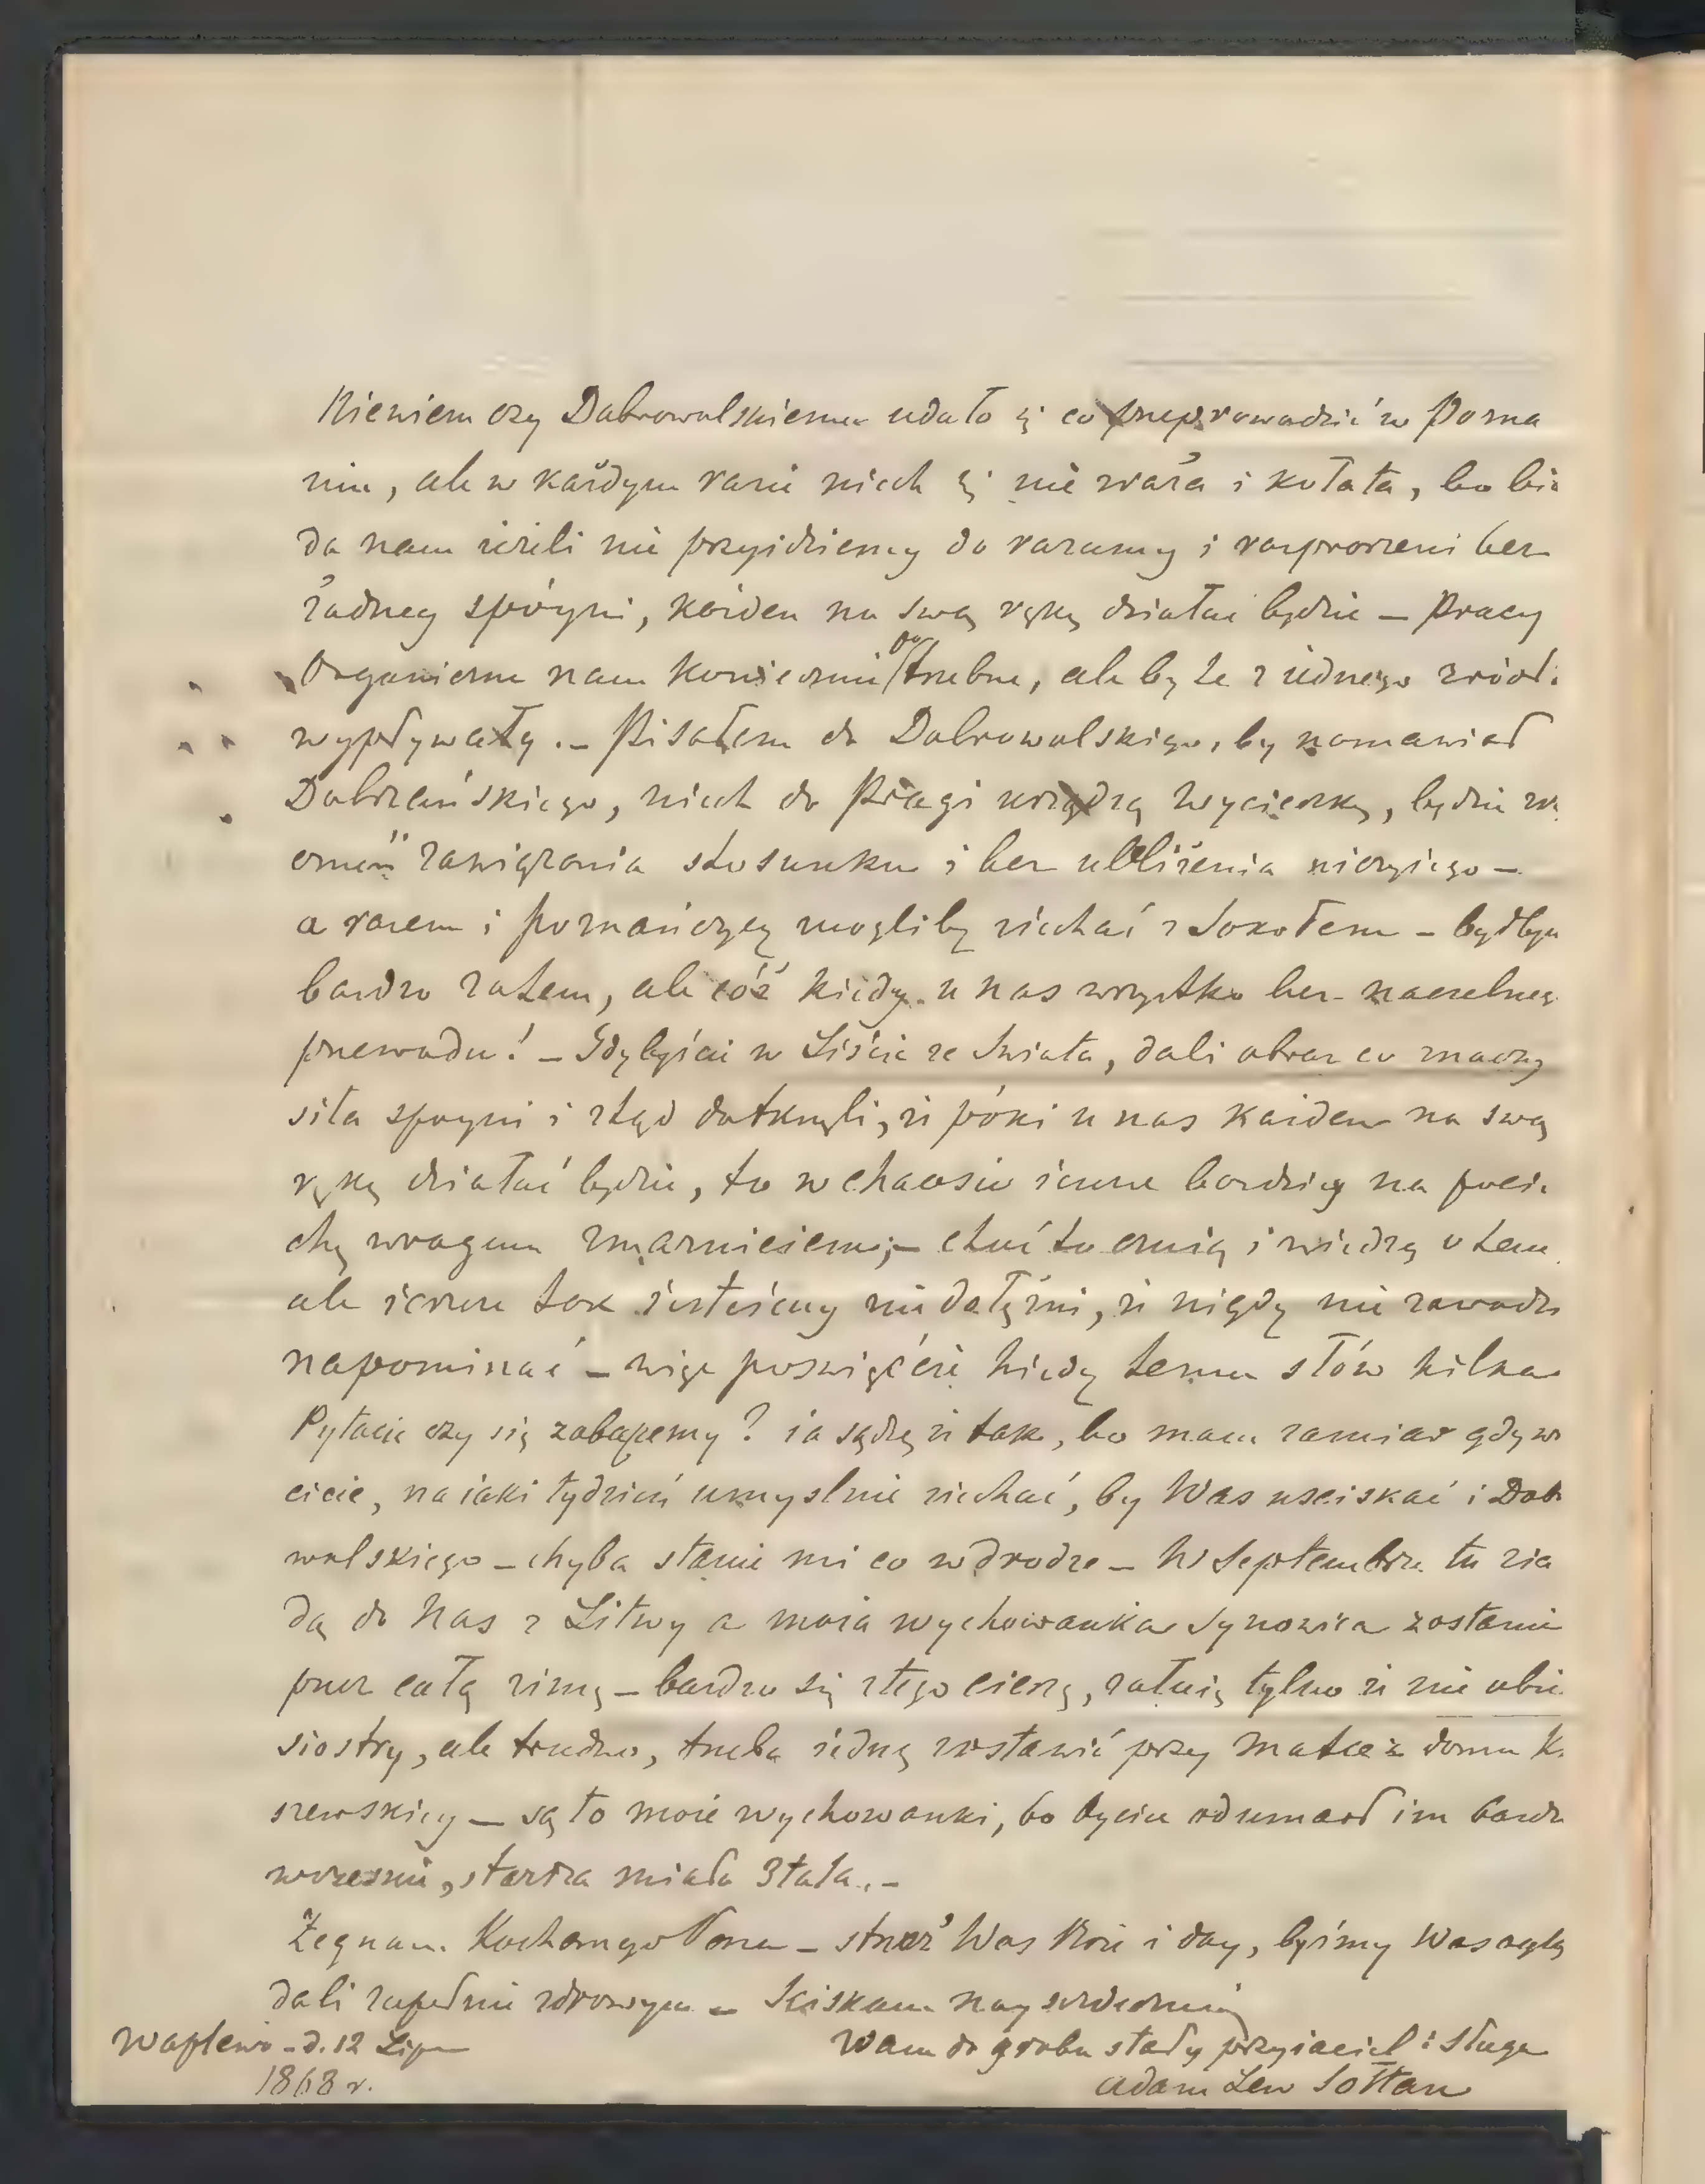 Niewiem czy Dobrowolskiemu udało się co przeprowadzić w Pozna
niu, ale w każdym razie niech się nie zraża i kołata, bo bie
da nam ieżeli nie przyidziemy do rozumu i rozproszeni bez
żadney spóyni, każden na swą rękę działać będzie – Pracy
organiczne nam koniecznie potrzebne, ale by te z iednego źródł
wypływały. – Pisałem do Dobrowolskiego, by namawiał
Dobrzańskiego, niech do Pragi urządzą wycieczkę, będzie
zawiązania stosunku i bez ubliżenia niczyiego –
a razem i poznańczycy mogliby ziechać z Sokołem – byłbym
bardzo zatem, ale cóż kiedy u nas wszystko bez naczelneg
przewodu! – Gdybyście w Liście ze Świata, dali obraz co znaczy
siła spoyni i ztąd dotknęli, iż póki u nas każden na swą
rękę działać będzie, to w chaosie ieszcze bardziey na pocie
chę wrogom zmarnieiemy; – choć to czuią i wiedzą o tem
ale ieszcze tak iesteśmy niedołężni, iż nigdy nie zawadzi
napominać – więc poświęćcie kiedy temu słów kilka
Pytacie czy się zobaczemy? ia sądzę iż tak, bo mam zamiar gdy wr
cicie, na iaki tydzień umyslnie ziechać, by Was usciskać i Dobr
wolskiego – chyba stanie mi co w drodze – W Septembrze tu zia
dą do Nas z Litwy a moia wychowanka Synowica zostanie
przez całą zimę – bardzo się ztego cieszę, żałuię tylko iż nie obie
siostry, ale trudno, trzeba iedną zostawić przy Matce z domu K
szewskiey – są to moie wychowanki, bo oyciec odumarł im bardz
wcześnie, starsza miała 3 lata. –
Żegnam Kochanego Pana – strzeż Was Boże i day, byśmy Was oglą
dali zupełnie zdrowym – Sciskam nayserdeczniey
Waplewo – d. 12 Lipca
1868 r.
Wam do grobu stały przyiaciel i sługa
Adam Lew Sołtan